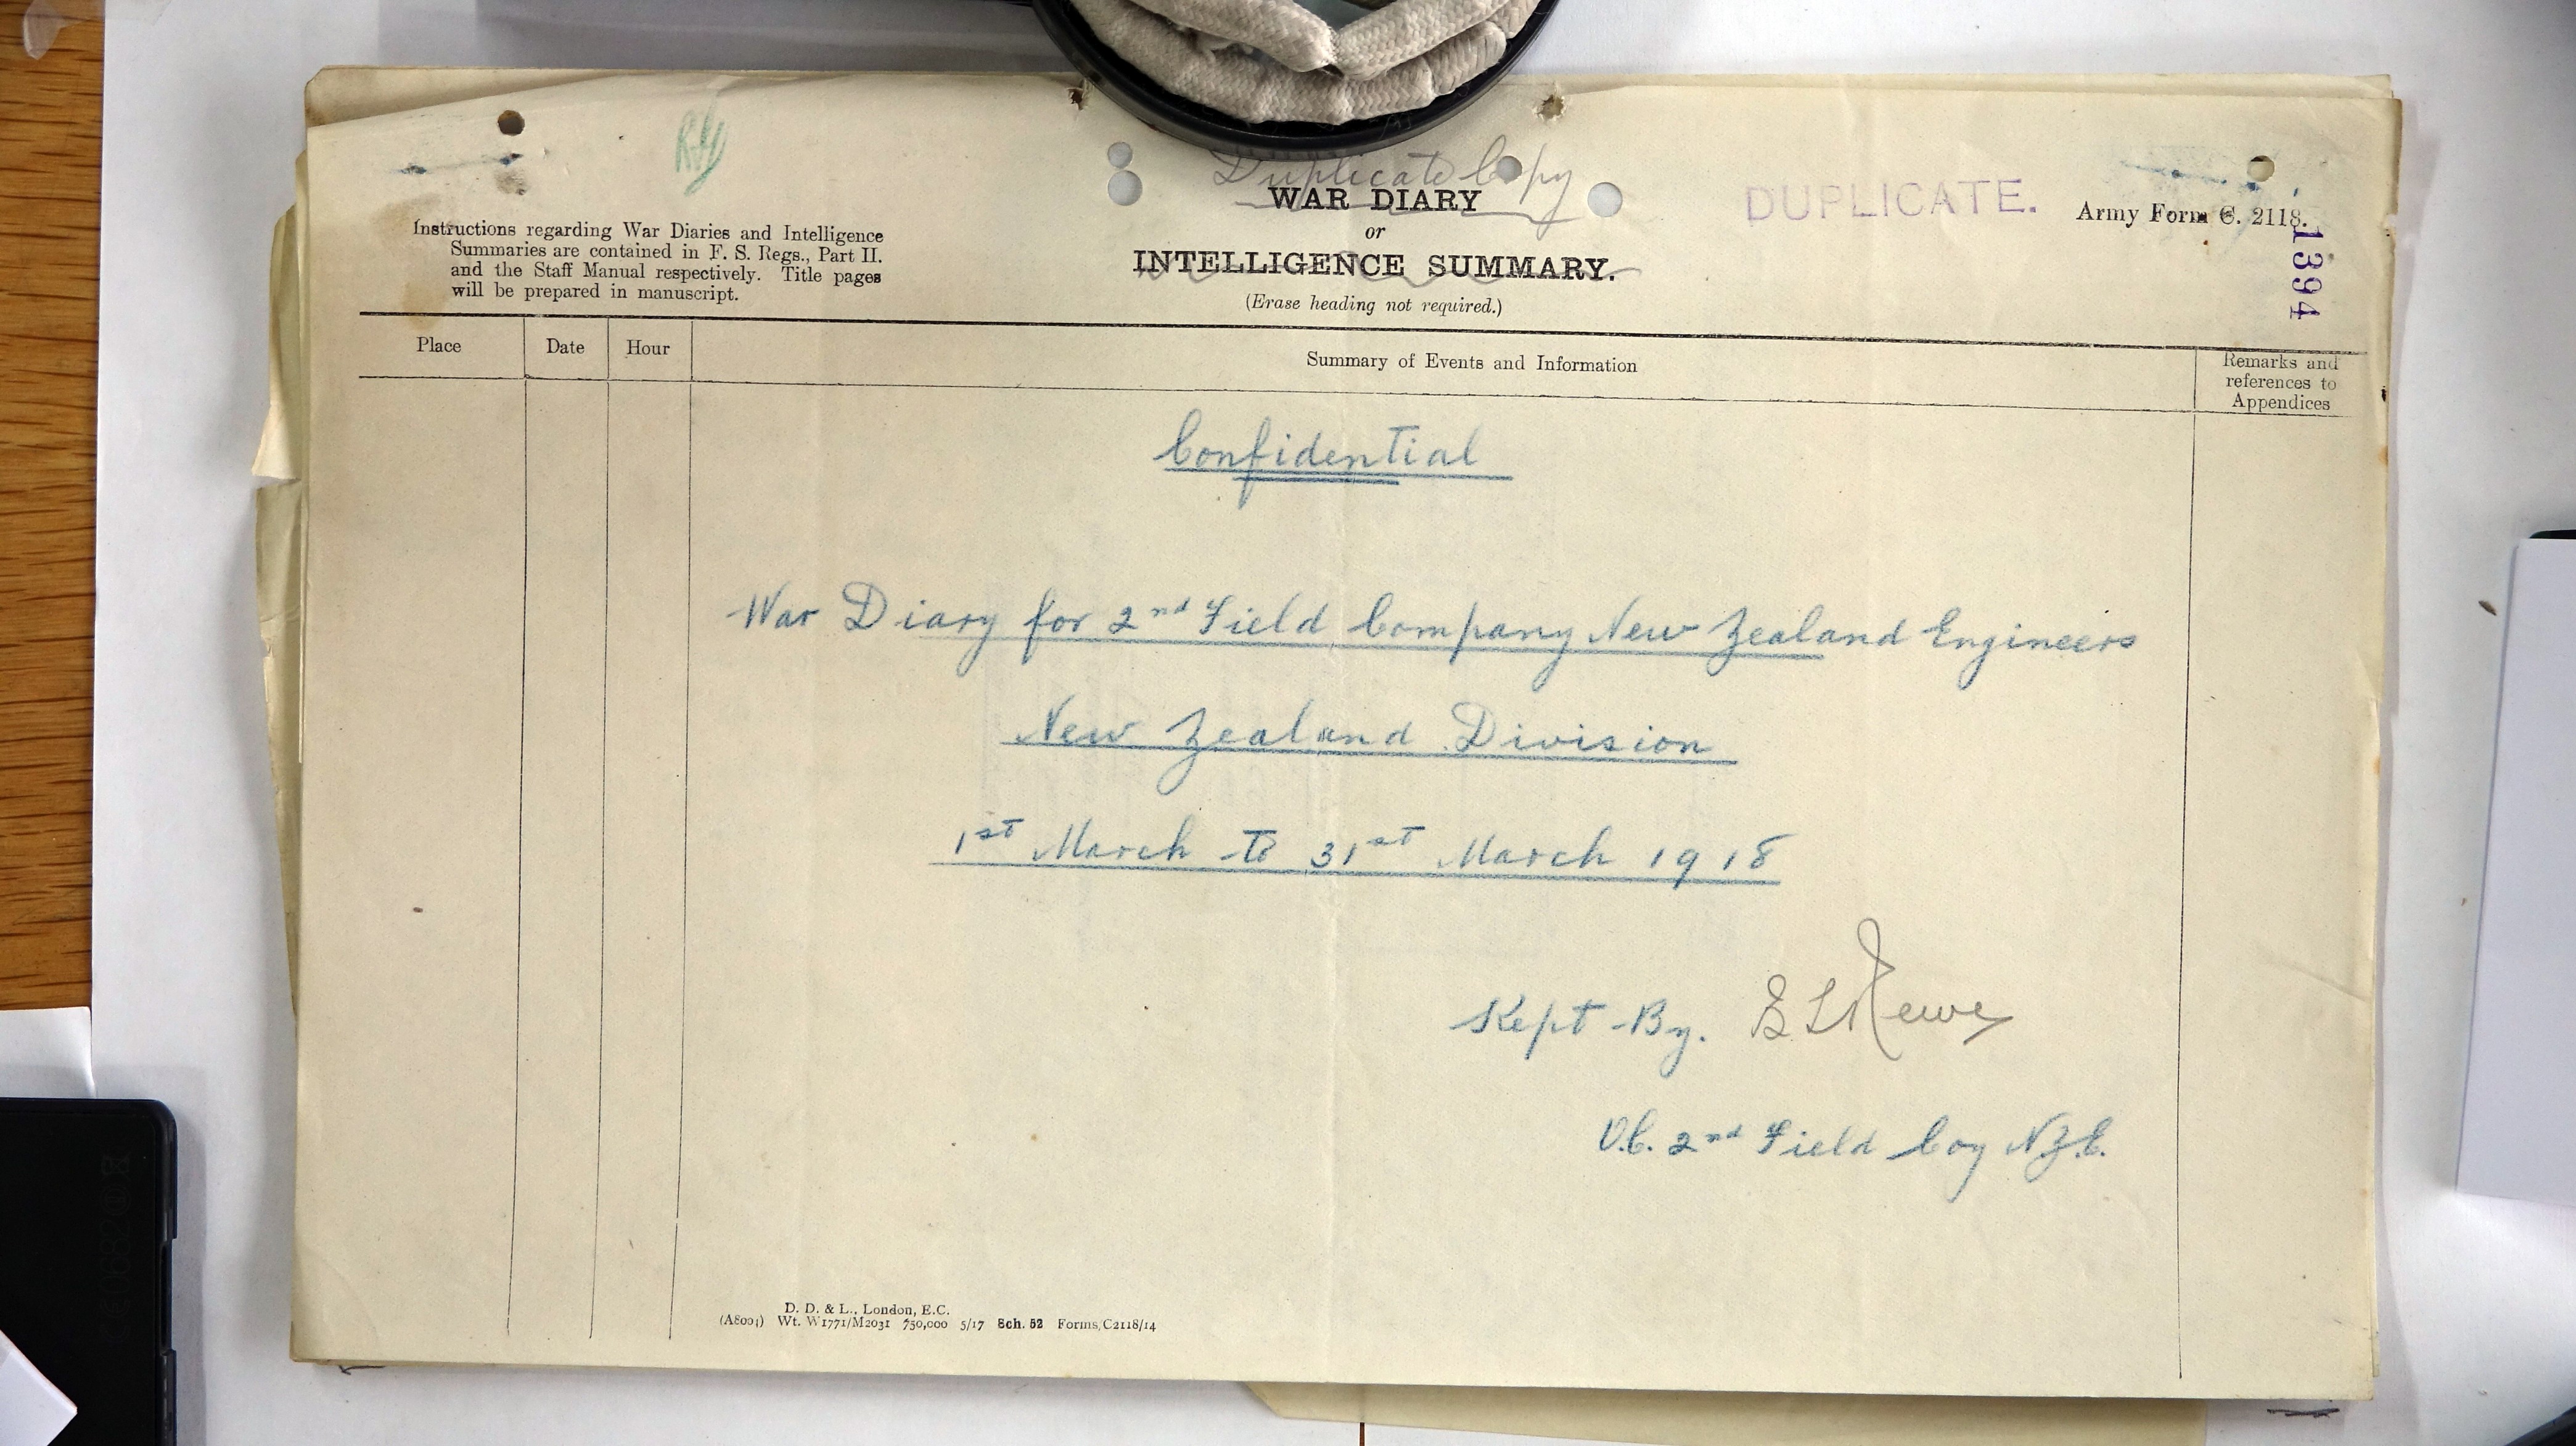 Duplicate Copy
WAR DIARY
or
INTELLIGENCE SUMMARY.
(Erase heading not required.)
Instructions regarding War Diaries and Intelligence
Summaries are contained in F. S. Regs., Part II.
and the Staff Manual respectively. Title pages
will be prepared in manuscript.
DUPLICATE.
Army Form C. 2118.
1394
Place
Date
Hour
Summary of Events and Information
Remarks and
references to
Appendices
Confidential
War Diary for 2nd Field Company New Zealand Engineers
New Zealand Division
1st March to 31st March 1918
Kept By.
O.C. 2nd Field Coy N.Z.E.
D. D. & L., London, E.C.
(A8001) Wt. W1771/M2031 750,000 5/17 Sch. 52 Forms, C2118/14